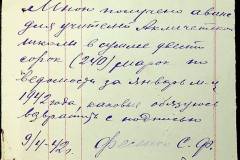 Мною получено аванс
для учителей Ахмечетской
школы в сумме двести
сорок (240) марок по
ведомости за январь м-ц
1942 года, каковые обязуюсь
возвратить с подписью
9/I-42г. С. Ф.